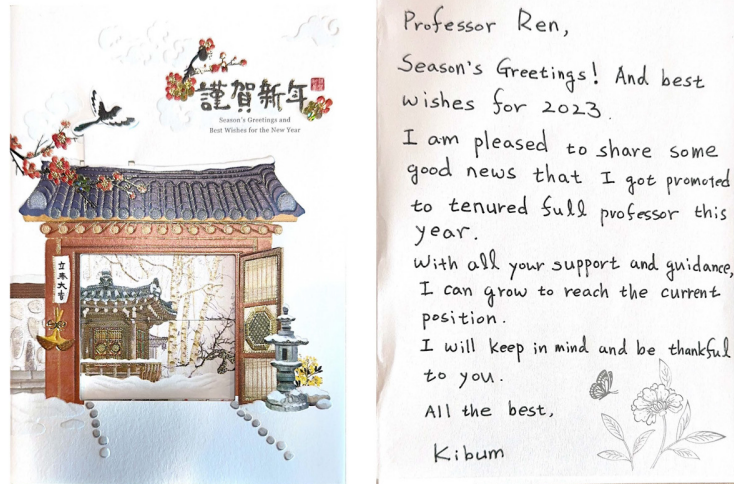 謹賀新年
Season's Greetings and
Best Wishes for the New Year
立春大吉
Professor Ren,
Season's Greetings! And best
wishes for 2023.
I am pleased to share some
good news that I got promoted
to tenured full professor this
year.
With all your support and guidance,
I can grow to reach the current
position.
I will keep in mind and be thankful
to you.
All the best,
Kibum